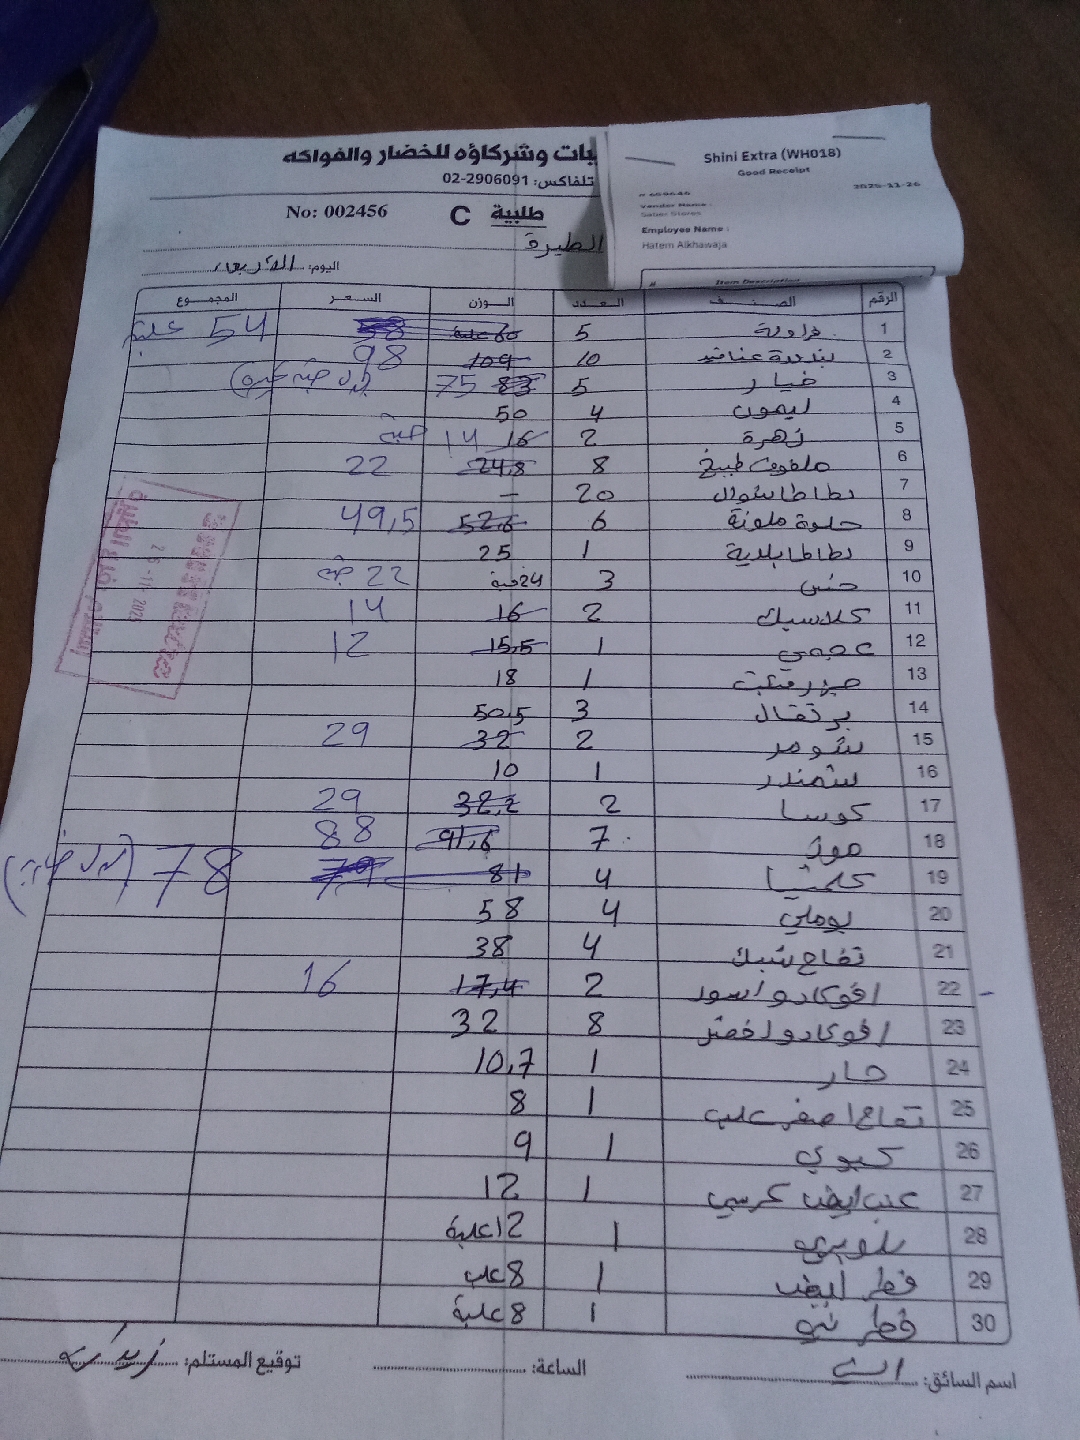 بات وشركاؤه للخضار والفواكه
تلفاكس: 02-2906091
No: 002456 C طلبية
الطيرة
اليوم: الأربعاء
Shini Extra (WH018)
Good Receipt
2025-11-26
Vendor Name :
Saber Stores
Employee Name :
Hatem Alkhawaja
# Item Description
الرقم الصنف العدد الوزن السعر المجموع
1 فراولة 5 60 علبة 58 54 علبة
2 بندورة عناقيد 10 109 98
3 خيار 5 83 75
4 ليمون 4 50
5 زهرة 2 16 14 حبة
6 ملفوف طبيخ 8 24,8 22
7 بطاطا شوال 20 –
8 حلوة ملونة 6 52,6 49,5
9 بطاطا بلدية 1 25
10 خس 3 24 حبة 22 حبة
11 كلاسيك 2 16 14
12 عجمي 1 15,5 12
13 1 18
14 برتقال 3 50,5
15 شومر 2 32 29
16 شمندر 1 10
17 كوسا 2 32,2 29
18 موز 7 91,6 88
19 كلمنتينا 4 81 79 78
20 بوملي 4 58
21 تفاح شبك 4 38
22 افوكادو اسود 2 17,4 16
23 افوكادو اخضر 8 32
24 حار 1 10,7
25 تفاح اصفر علب 1 8
26 كيوي 1 9
27 عنب ابيض كرسبي 1 12
28 بلوبيري 1 12 علبة
29 فطر ابيض 1 8 علب
30 فطر بني 1 8 علبة
اسم السائق: الساعة: توقيع المستلم: